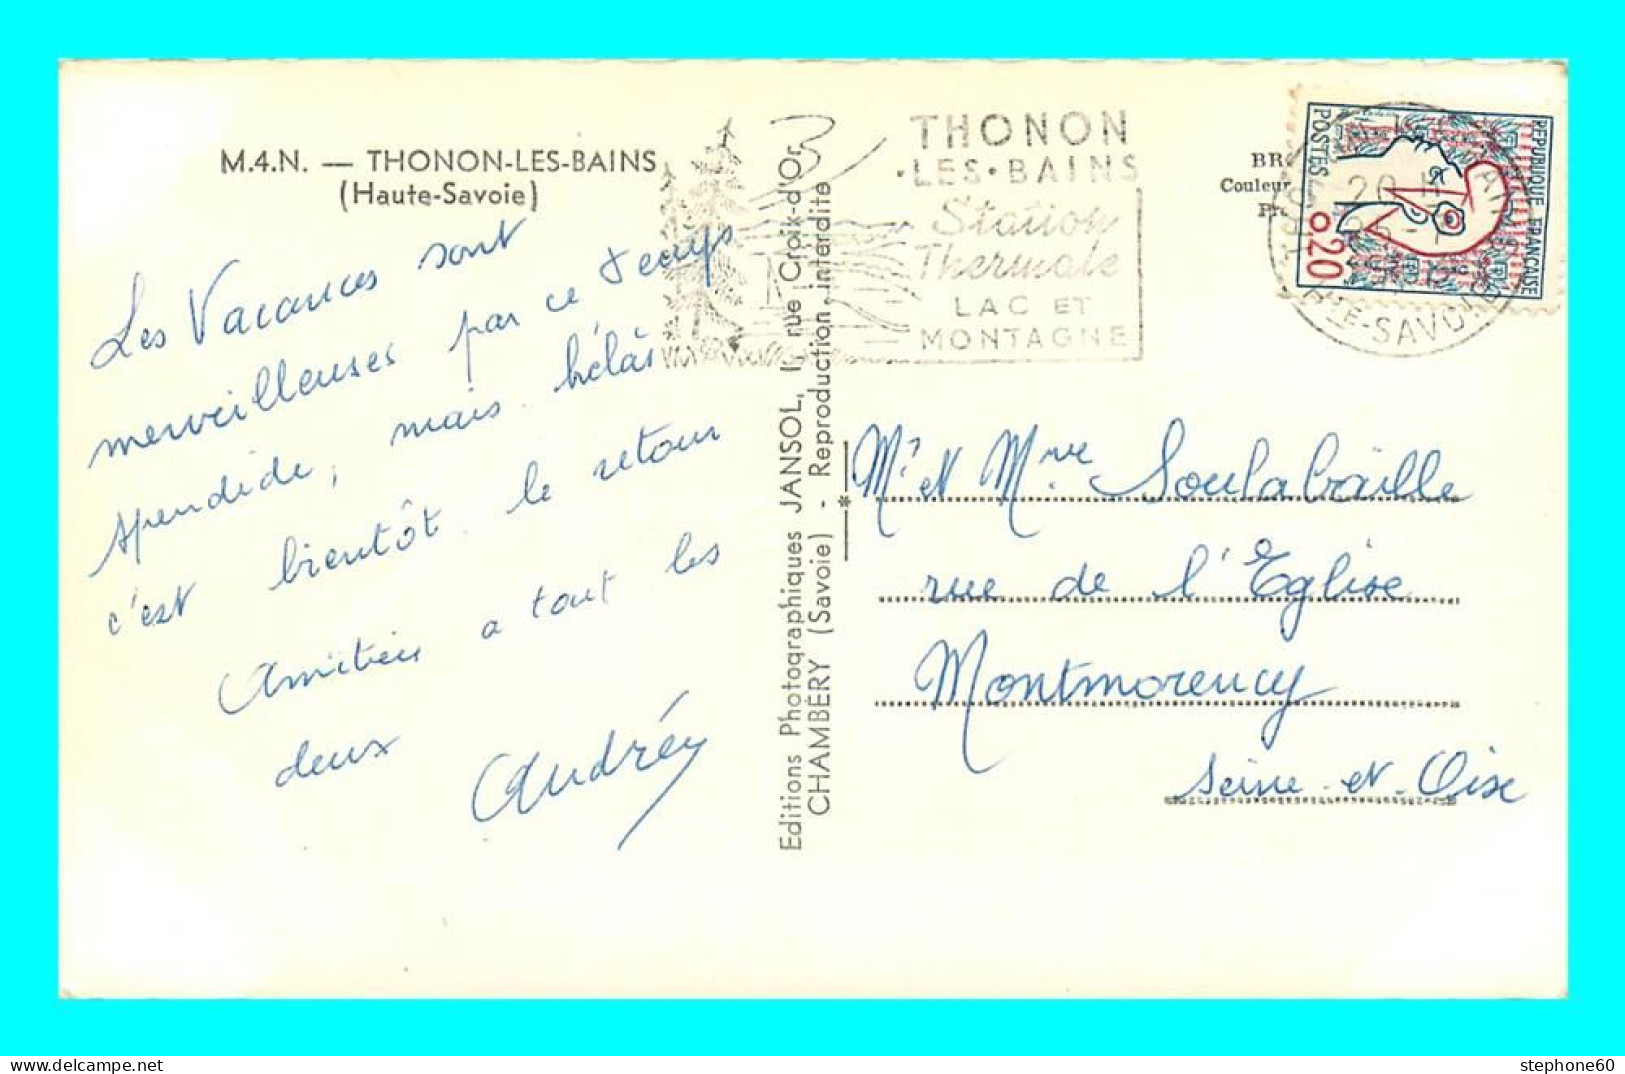 M.4.N. — THONON-LES-BAINS
(Haute-Savoie)
Les Vacances sont
merveilleuses par ce temps
spendide, mais hélas
c'est bientôt le retour
Amitiés a tout les
deux
Andréy
Editions Photographiques JANSOL, 1, rue Croix-d'Or,
CHAMBÉRY (Savoie) - Reproduction interdite
THONON
·LES·BAINS
Station
Thermale
LAC ET
MONTAGNE
BR
Couleur
REPUBLIQUE FRANÇAISE
POSTES
0,20
20 H
HTE-SAVOIE
Mr et Mme Soulabaille
rue de l'Eglise
Montmorency
Seine-et-Oise
stephone60